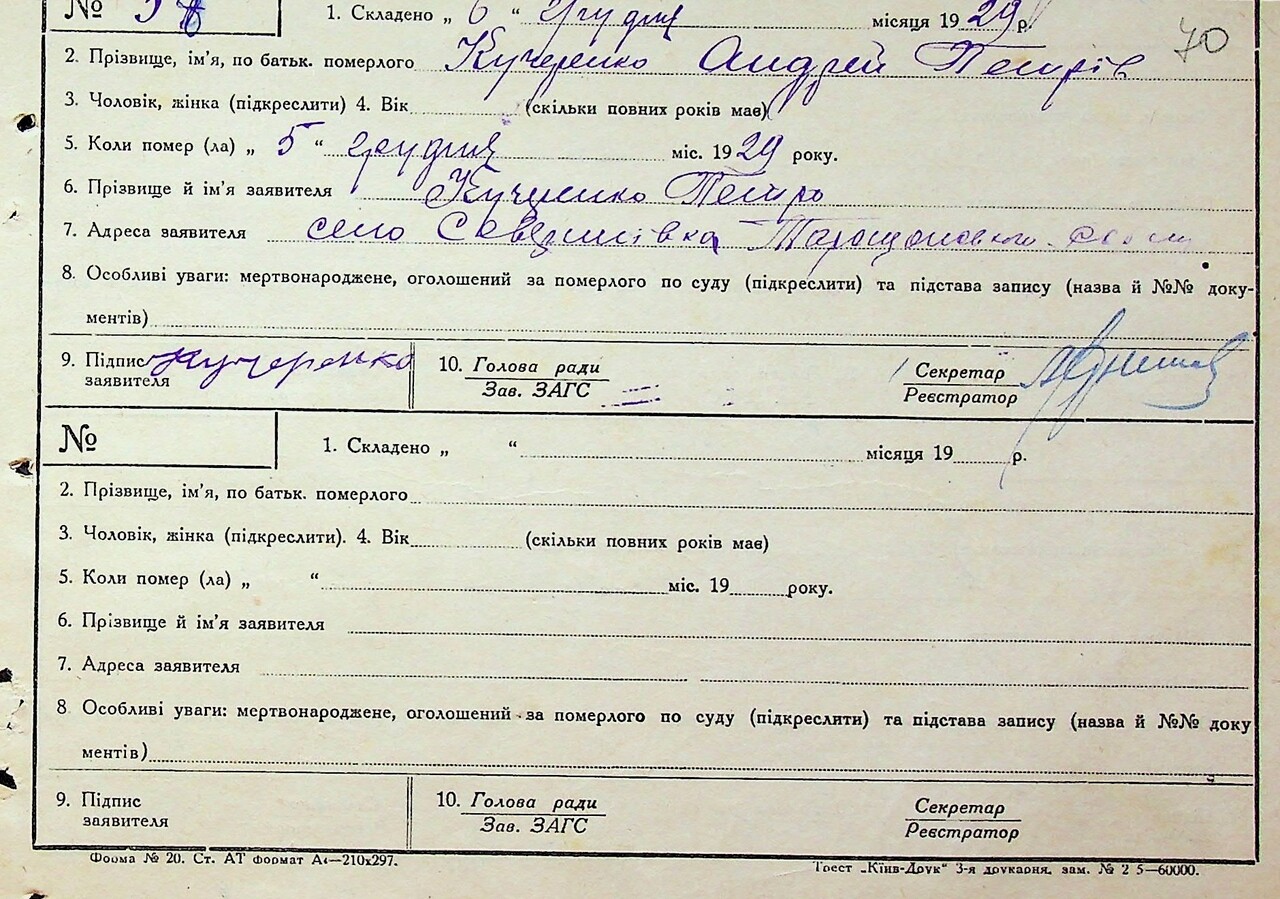 №
1. Складено „ 6 “ грудня місяця 1929 р.
70
2. Прізвище, ім'я, по батьк. померлого Кучеренко Андрей Петрів
3. Чоловік, жінка (підкреслити) 4. Вік (скільки повних років має)
5. Коли помер (ла) „ 5 “ грудня міс. 1929 року.
6. Прізвище й ім'я заявителя Кучеренко Петро
7. Адреса заявителя село Северинівка
8. Особливі уваги: мертвонароджене, оголошений за померлого по суду (підкреслити) та підстава запису (назва й №№ доку-
ментів)
9. Підпис заявителя Кучеренко
10. Голова ради
Зав. ЗАГС
Секретар
Реєстратор
№
1. Складено „ “ місяця 19 р.
2. Прізвище, ім'я, по батьк. померлого
3. Чоловік, жінка (підкреслити). 4. Вік (скільки повних років має)
5. Коли помер (ла) „ “ міс. 19 року.
6. Прізвище й ім'я заявителя
7. Адреса заявителя
8 Особливі уваги: мертвонароджене, оголошений за померлого по суду (підкреслити) та підстава запису (назва й №№ доку
ментів)
9. Підпис
заявителя
10. Голова ради
Зав. ЗАГС
Секретар
Реєстратор
Форма № 20. Ст. АТ формат А4—210х297.
Трест „Київ-Друк“ 3-я друкарня. зам. № 2 5—60000.